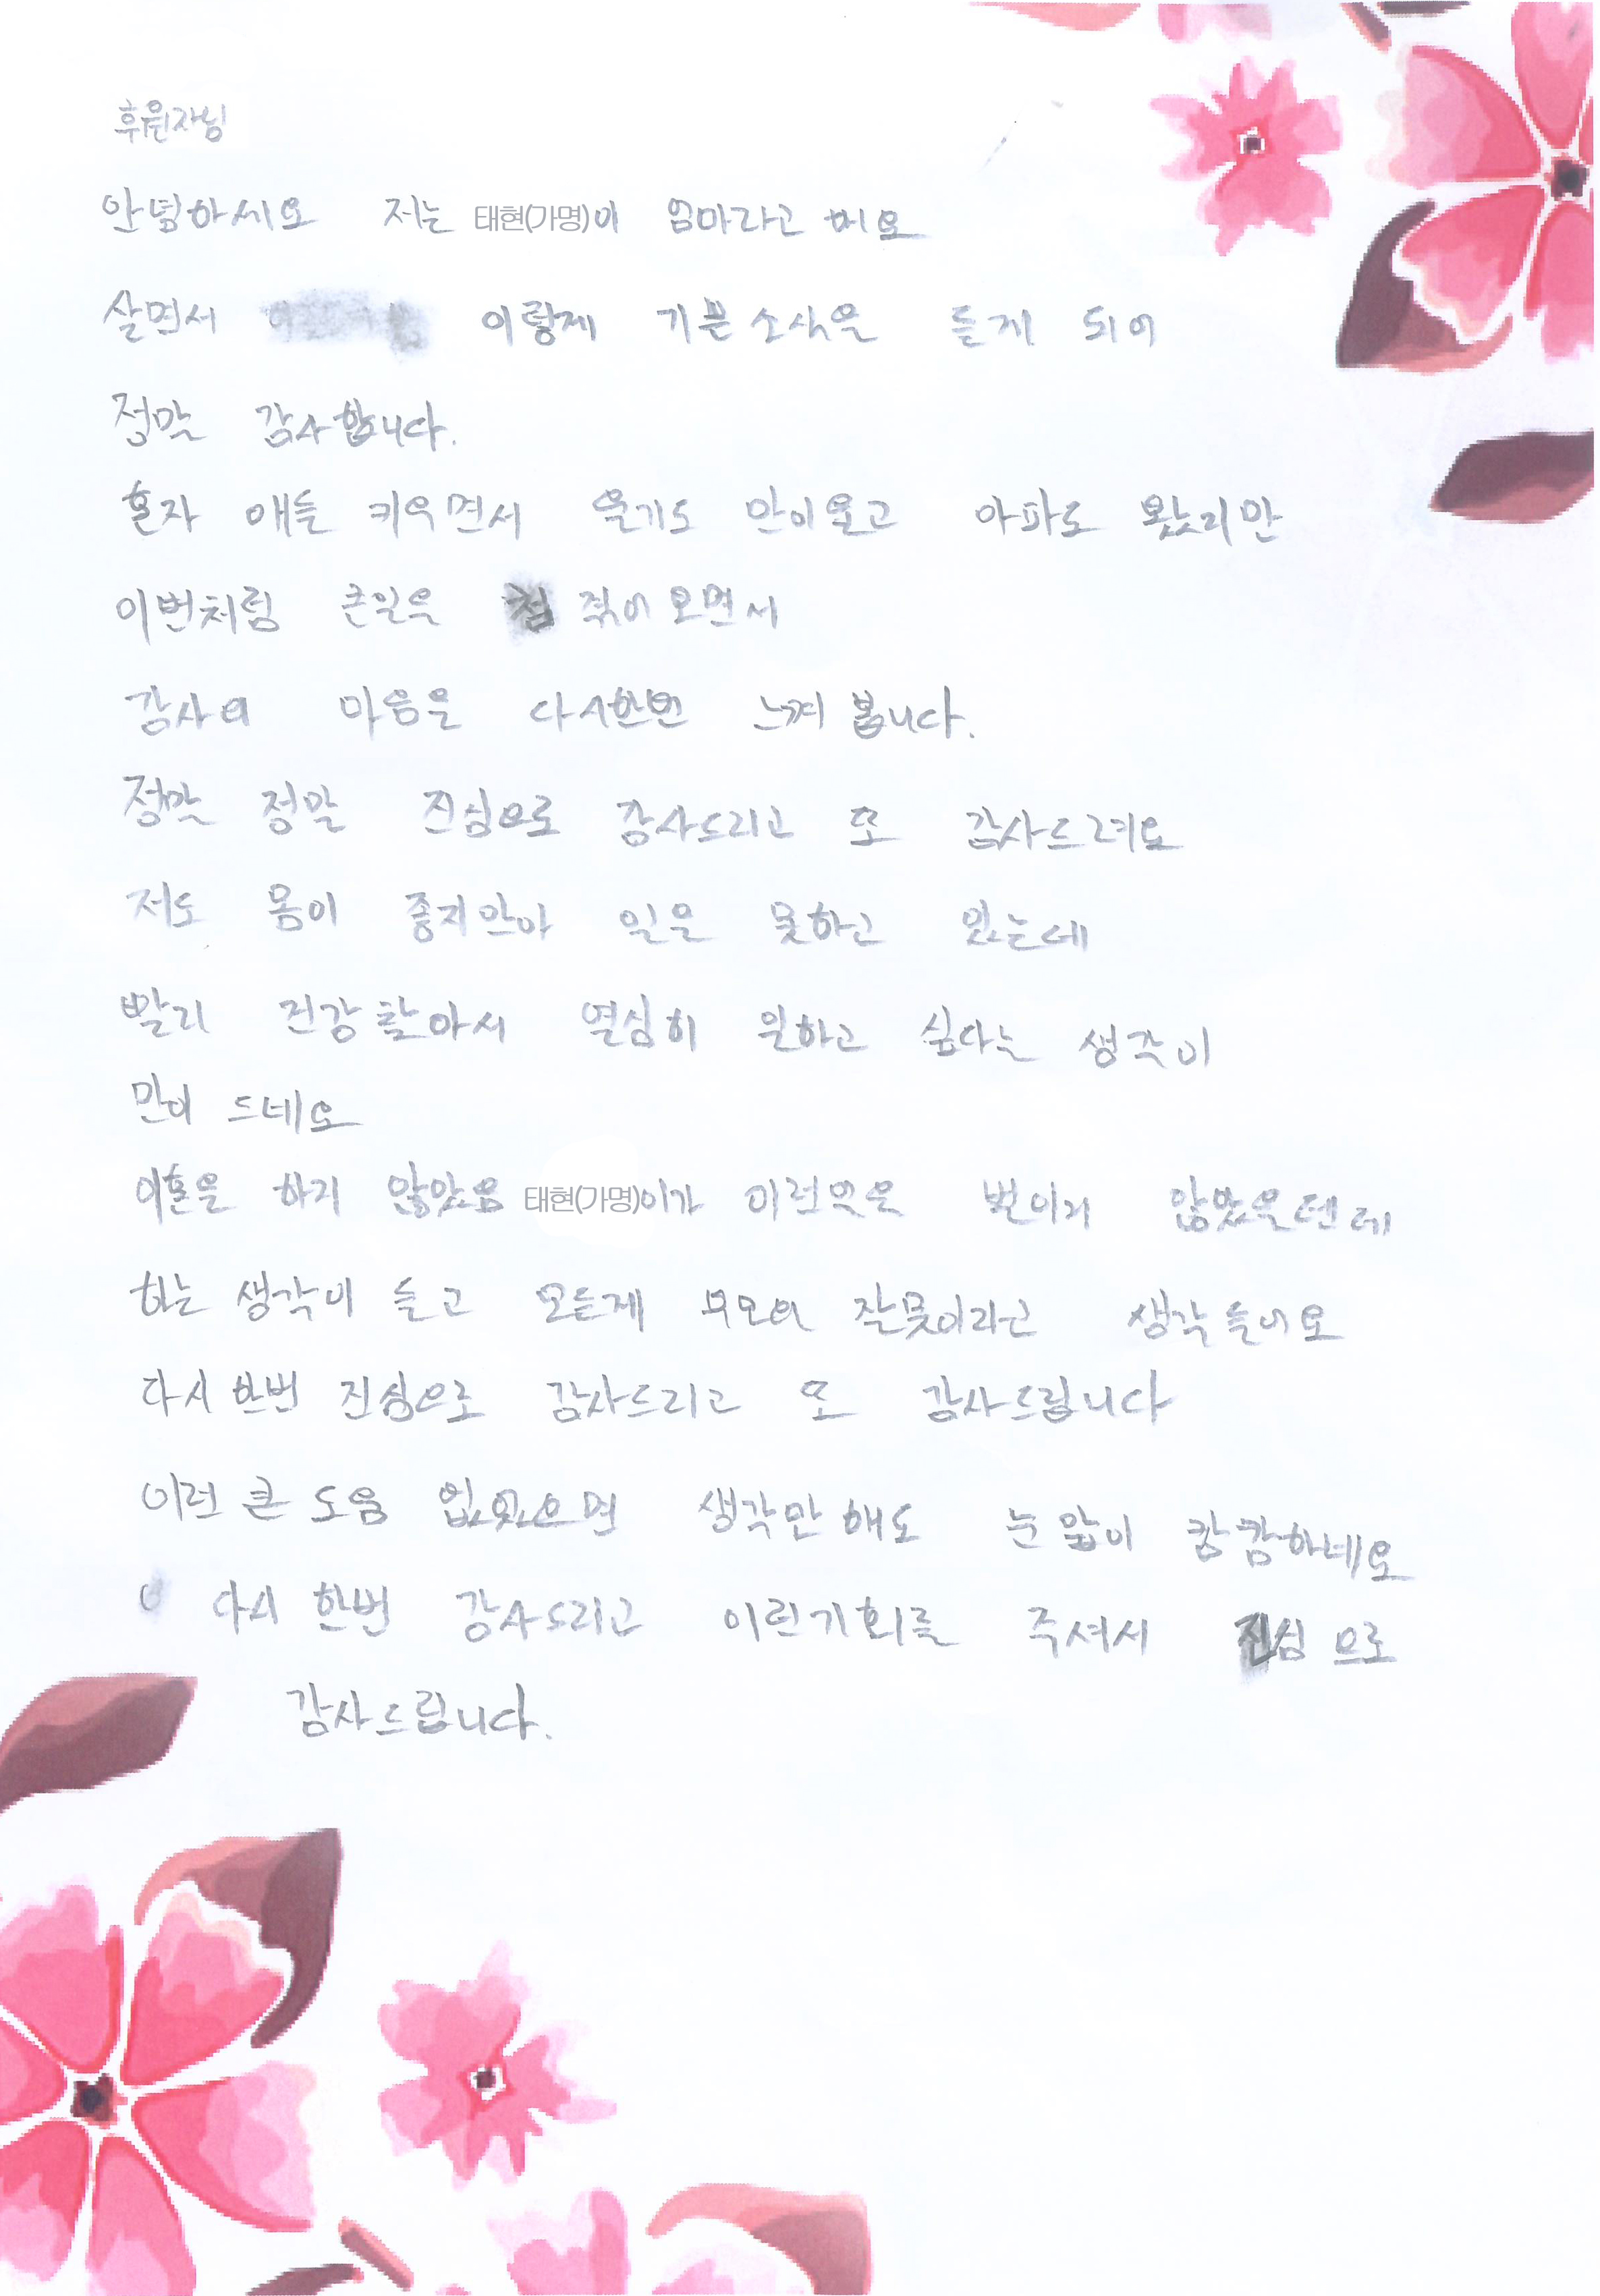 후원자님
안녕하세요 저는 태현(가명)이 엄마라고 해요
살면서 이렇게 기쁜소식을 듣게 되어
정말 감사합니다.
혼자 애들 키우면서 울기도 만이울고 아파도 왔지만
이번처럼 큰일을 첨 겪어 오면서
감사의 마음을 다시한번 느껴 봅니다.
정말 정말 진심으로 감사드리고 또 감사드려요
저도 몸이 좋지안아 일을 못하고 있는데
빨리 건강 찾아서 열심히 일하고 싶다는 생각이
만이 드네요
이혼을 하지 않았음 태현(가명)이가 이런일은 벌이지 않았을텐데
하는 생각이 들고 모든게 부모의 잘못이라고 생각들어요
다시 한번 진심으로 감사드리고 또 감사드립니다
이런 큰 도움 없었으면 생각만 해도 눈 앞이 캄캄하네요
다시 한번 감사드리고 이런기회를 주셔서 진심 으로
감사드립니다.